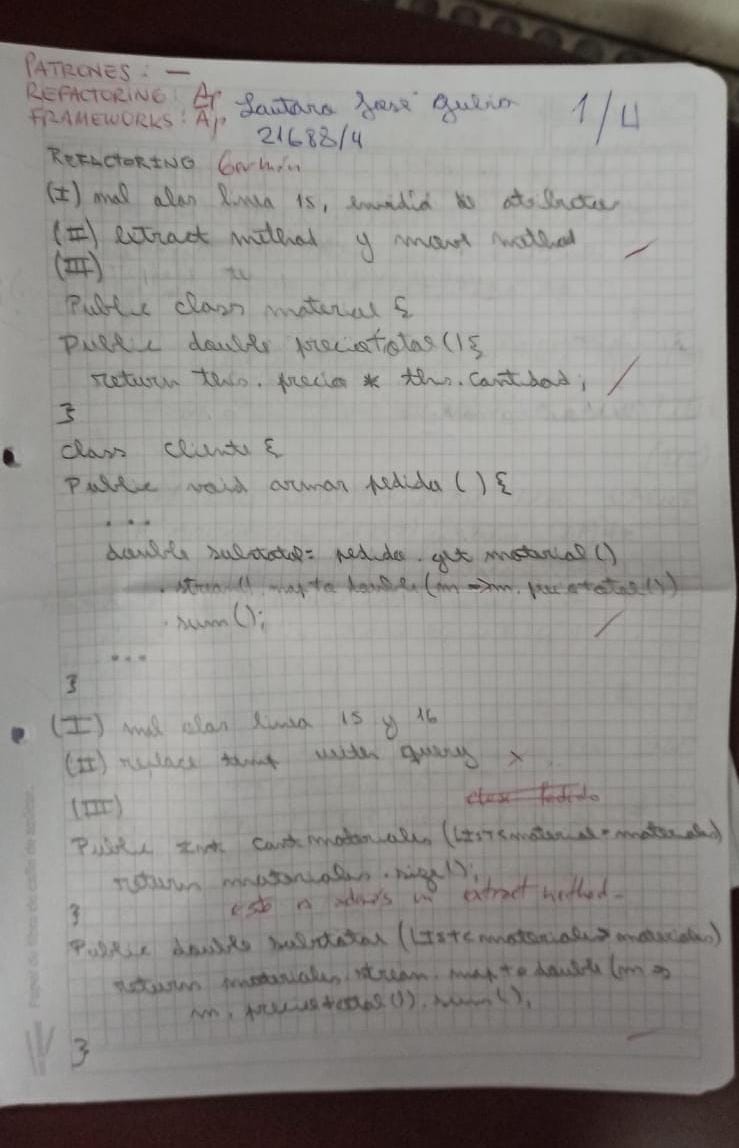 PATRONES: —
REFACTORING: Ap
FRAMEWORKS: Ap.
Lautaro José Julian 1/4
21688/4
REFACTORING
(I) mal olor linea 15, envidia de atributos
(II) extract method y move method
(III)
Public class material {
Public double preciototal () {
return this. precio * this. cantidad;
}
class cliente {
Public void armar pedido () {
...
double subtotal = pedido. get material ()
. stream(). map to double (m -> m. preciototal ())
. sum();
...
}
(I) mal olor linea 15 y 16
(II) replace temp with query x
(III)
class Pedido
Public int cantmateriales (List<material> materiales)
return materiales. size();
} esto es además un extract method.
Public double subtotal (List<materiales> materiales)
return materiales. stream. map to double (m ->
m. preciototal ()). sum ();
}